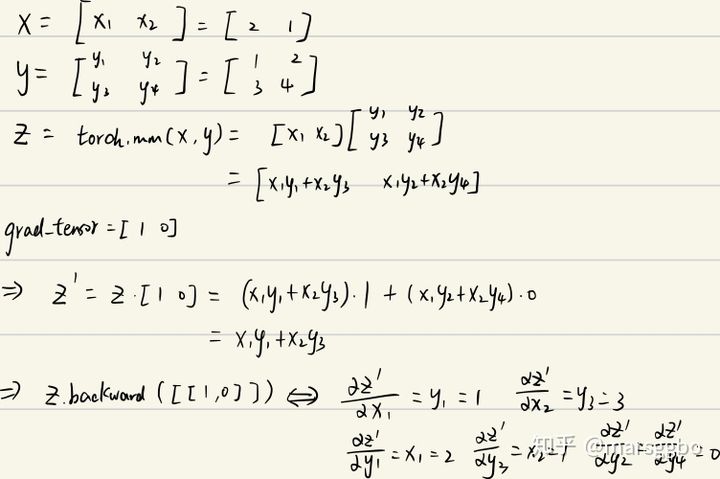 X = [ x₁ x₂ ] = [ 2 1 ]
y = [ y₁ y₂ ] = [ 1 2 ]
[ y₃ y₄ ] [ 3 4 ]
Z = torch.mm(x, y) = [x₁ x₂] [ y₁ y₂ ]
[ y₃ y₄ ]
= [x₁y₁+x₂y₃ x₁y₂+x₂y₄]
grad_tensor = [ 1 0 ]
⇒ Z' = Z·[1 0] = (x₁y₁+x₂y₃)·1 + (x₁y₂+x₂y₄)·0
= x₁y₁+x₂y₃
⇒ Z.backward([[1,0]]) ⇔ ∂Z'/∂X₁ = y₁ = 1 ∂Z'/∂x₂ = y₃ = 3
∂Z'/∂y₁ = x₁ = 2 ∂Z'/∂y₃ = x₂ = 1 ∂Z'/∂y₂ = ∂Z'/∂y₄ = 0
知乎 @marsggbo